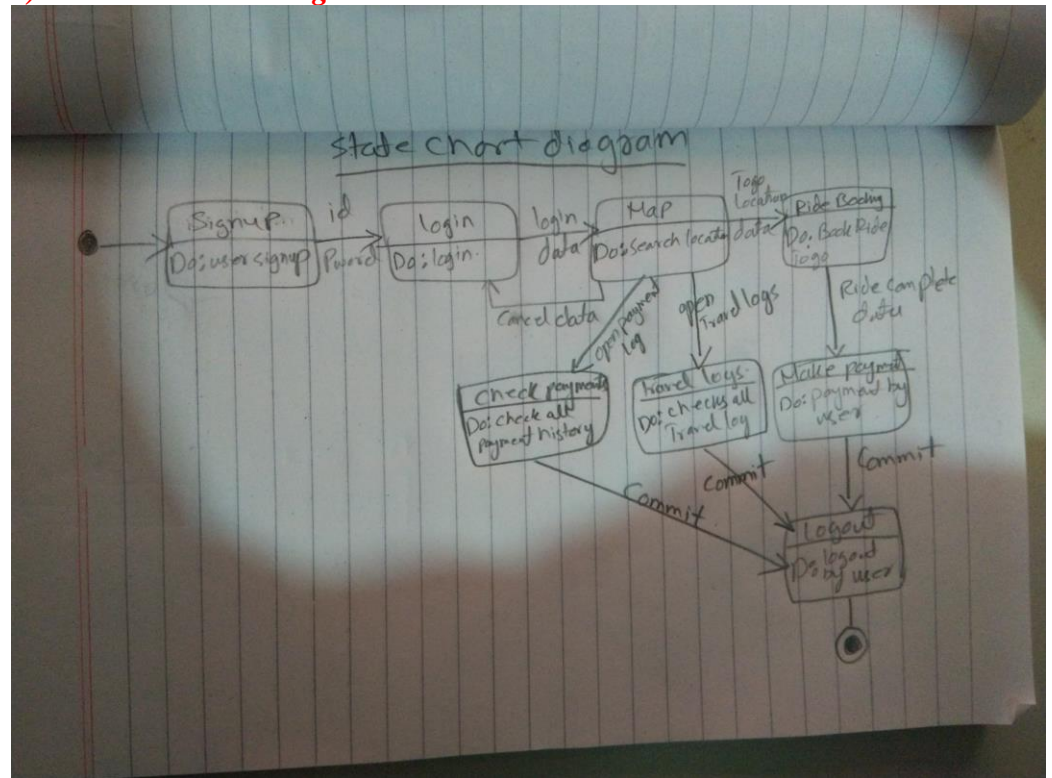 State chart diagram
Signup
Do: user signup
id
login
Do: login
login
data
Map
Do: search locatio
Togo
Location
data
Ride Booking
Do: Book Ride
Togo
Cancel data
open payment
log
open
Travel logs
Ride complete
data
Check payments
Do: check all
payment history
Travel logs
Do: checks all
Travel log
Make payment
Do: payment by
user
Commit
Commit
Commit
Logout
Do: logout
by user